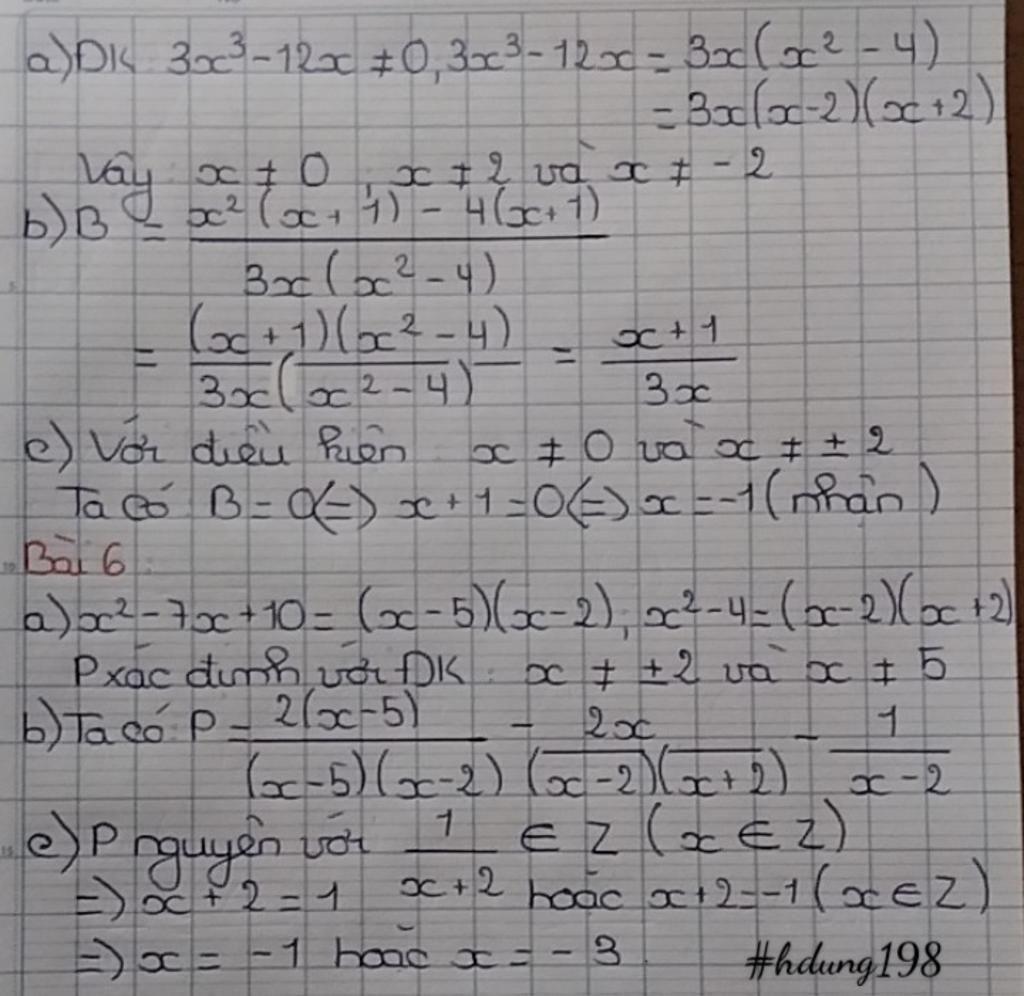 a) ĐK 3x³-12x ≠ 0, 3x³-12x = 3x(x² - 4)
= 3x(x-2)(x+2)
Vậy x ≠ 0 ; x ≠ 2 và x ≠ - 2
b) B = x²(x+1) - 4(x+1) / 3x(x² - 4)
= (x+1)(x² - 4) / 3x(x² - 4) = x+1 / 3x
c) Với điều kiện x ≠ 0 và x ≠ ± 2
Ta có B = 0 (=) x + 1 = 0 (=) x = -1 (nhận)
Bài 6:
a) x² - 7x + 10 = (x - 5)(x - 2); x² - 4 = (x - 2)(x + 2)
P xác định với ĐK : x ≠ ±2 và x ≠ 5
b) Ta có P = 2(x-5) / (x-5)(x-2) - 2x / (x-2)(x+2) - 1 / x-2
c) P nguyên với 1 / x+2 ∈ Z (x ∈ Z)
=) x + 2 = 1 hoặc x+2=-1 (x ∈ Z)
=) x = -1 hoặc x = - 3
#hdung198